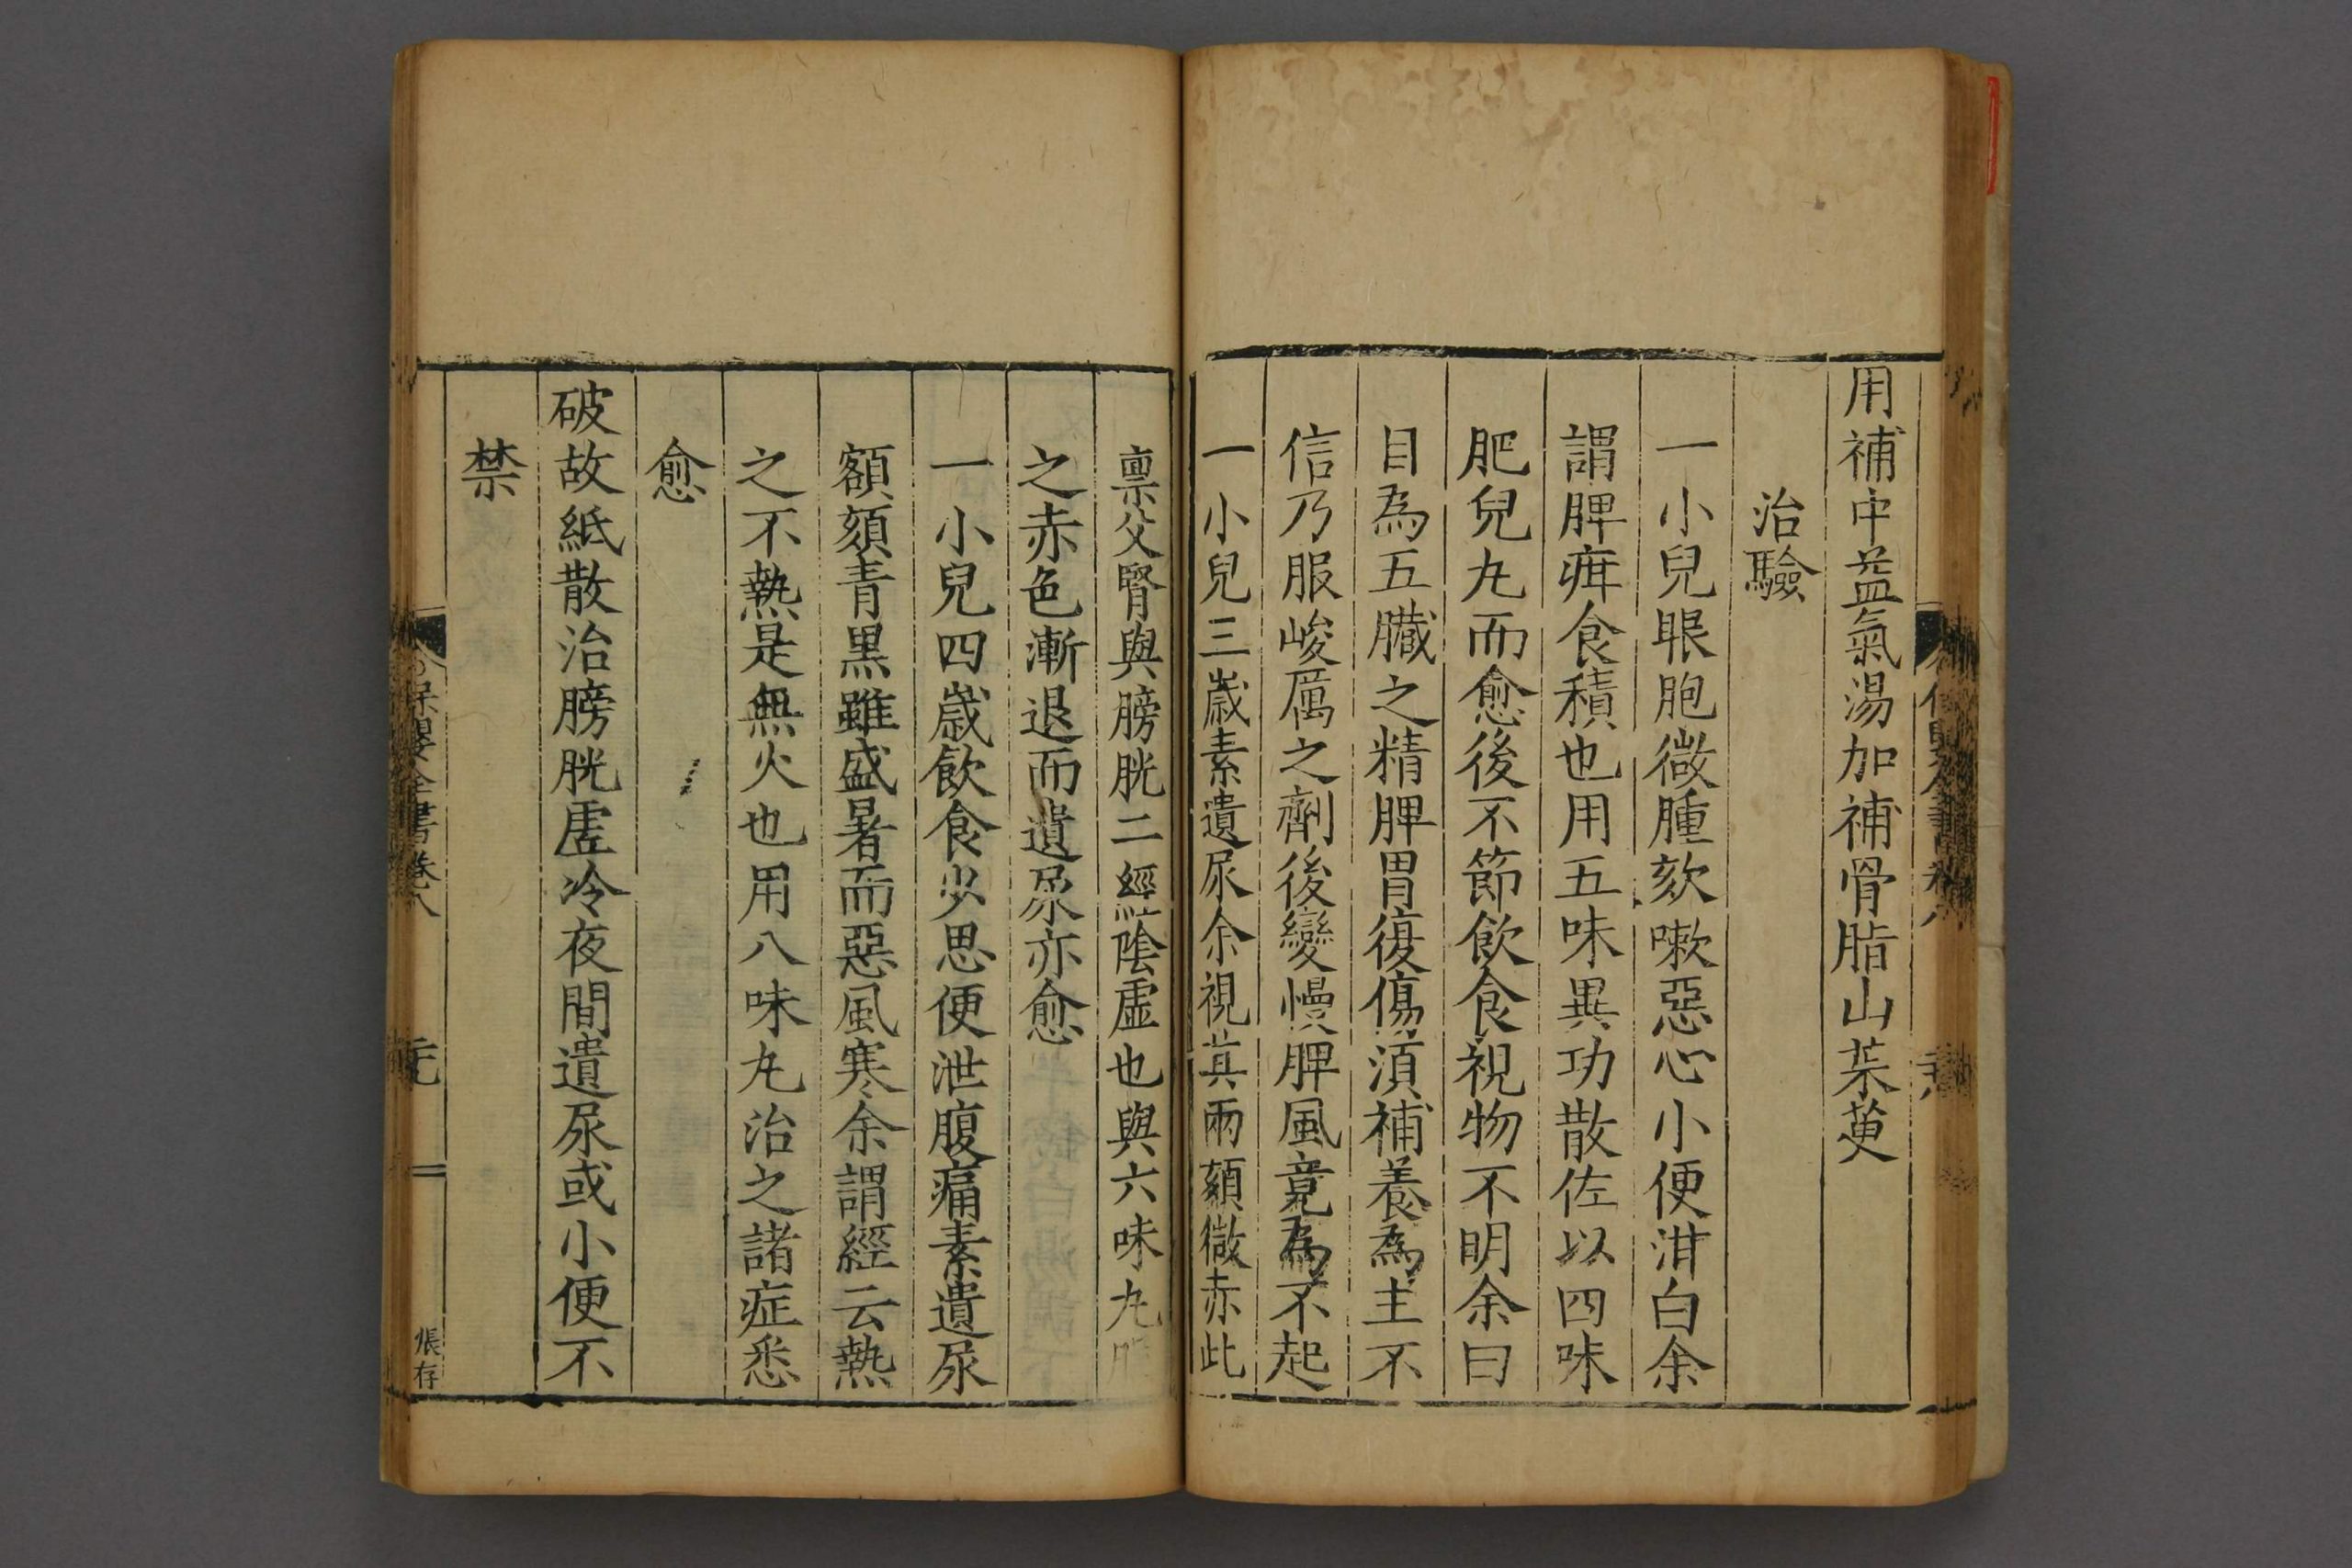 用補中益氣湯加補骨脂山茱萸
治驗
一小兒眼胞微腫欬嗽惡心小便泔白余
謂脾疳食積也用五味異功散佐以四味
肥兒丸而愈後不節飲食視物不明余曰
目為五臟之精脾胃復傷湏補養為主不
信乃服峻厲之劑後變慢脾風竟為不起
一小兒三歲素遺尿余視其兩頦微赤此
禀父腎與膀胱二經陰虛也與六味丸服
之赤色漸退而遺尿亦愈
一小兒四歲飲食少思便泄腹痛素遺尿
額頦青黑雖盛暑而惡風寒余謂經云熱
之不熱是無火也用八味丸治之諸症悉
愈
破故紙散治膀胱虛冷夜間遺尿或小便不
禁
保嬰全書卷八
張存